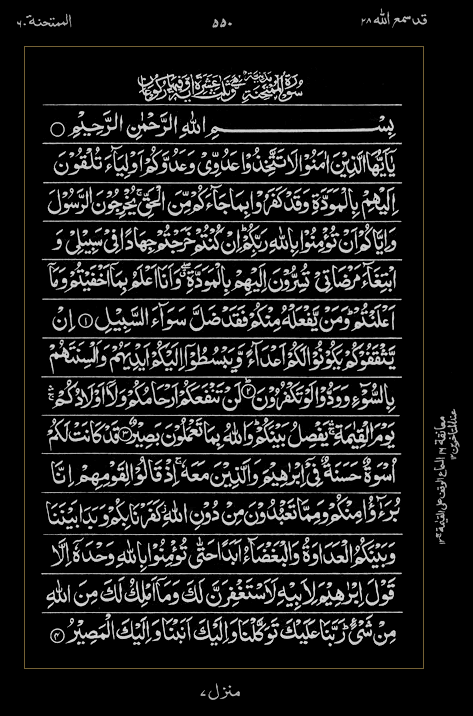 قد سمع الله ٢٨
٥٥٠
الممتحنة ٦٠
سُوْرَةُ الْمُمْتَحِنَةِ مَدَنِيَّةٌ وَّهِيَ ثَلٰثَ عَشْرَةَ اٰيَةً وَّفِيْهَا رُكُوْعَانِ
بِسْمِ اللهِ الرَّحْمٰنِ الرَّحِيْمِ
يٰۤاَيُّهَا الَّذِيْنَ اٰمَنُوْا لَا تَتَّخِذُوْا عَدُوِّيْ وَعَدُوَّكُمْ اَوْلِيَآءَ تُلْقُوْنَ
اِلَيْهِمْ بِالْمَوَدَّةِ وَقَدْ كَفَرُوْا بِمَا جَآءَكُمْ مِّنَ الْحَقِّ ۚ يُخْرِجُوْنَ الرَّسُوْلَ
وَاِيَّاكُمْ اَنْ تُؤْمِنُوْا بِاللهِ رَبِّكُمْ ؕ اِنْ كُنْتُمْ خَرَجْتُمْ جِهَادًا فِيْ سَبِيْلِيْ وَ
ابْتِغَآءَ مَرْضَاتِيْ تُسِرُّوْنَ اِلَيْهِمْ بِالْمَوَدَّةِ ۖ وَاَنَا اَعْلَمُ بِمَاۤ اَخْفَيْتُمْ وَمَاۤ
اَعْلَنْتُمْ ؕ وَمَنْ يَّفْعَلْهُ مِنْكُمْ فَقَدْ ضَلَّ سَوَآءَ السَّبِيْلِ ۝١ اِنْ
يَّثْقَفُوْكُمْ يَكُوْنُوْا لَكُمْ اَعْدَآءً وَّيَبْسُطُوْۤا اِلَيْكُمْ اَيْدِيَهُمْ وَاَلْسِنَتَهُمْ
بِالسُّوْٓءِ وَوَدُّوْا لَوْ تَكْفُرُوْنَ ۝٢ لَنْ تَنْفَعَكُمْ اَرْحَامُكُمْ وَلَاۤ اَوْلَادُكُمْ
يَوْمَ الْقِيٰمَةِ ۛ يَفْصِلُ بَيْنَكُمْ ؕ وَاللهُ بِمَا تَعْمَلُوْنَ بَصِيْرٌ ۝٣ قَدْ كَانَتْ لَكُمْ
اُسْوَةٌ حَسَنَةٌ فِيْۤ اِبْرٰهِيْمَ وَالَّذِيْنَ مَعَهٗ ۚ اِذْ قَالُوْا لِقَوْمِهِمْ اِنَّا
بُرَءٰٓؤُا مِنْكُمْ وَمِمَّا تَعْبُدُوْنَ مِنْ دُوْنِ اللهِ ؗ كَفَرْنَا بِكُمْ وَبَدَا بَيْنَنَا
وَبَيْنَكُمُ الْعَدَاوَةُ وَالْبَغْضَآءُ اَبَدًا حَتّٰى تُؤْمِنُوْا بِاللهِ وَحْدَهٗۤ اِلَّا
قَوْلَ اِبْرٰهِيْمَ لِاَبِيْهِ لَاَسْتَغْفِرَنَّ لَكَ وَمَاۤ اَمْلِكُ لَكَ مِنَ اللهِ
مِنْ شَيْءٍ ؕ رَبَّنَا عَلَيْكَ تَوَكَّلْنَا وَاِلَيْكَ اَنَبْنَا وَاِلَيْكَ الْمَصِيْرُ ۝٤
منزل ٧